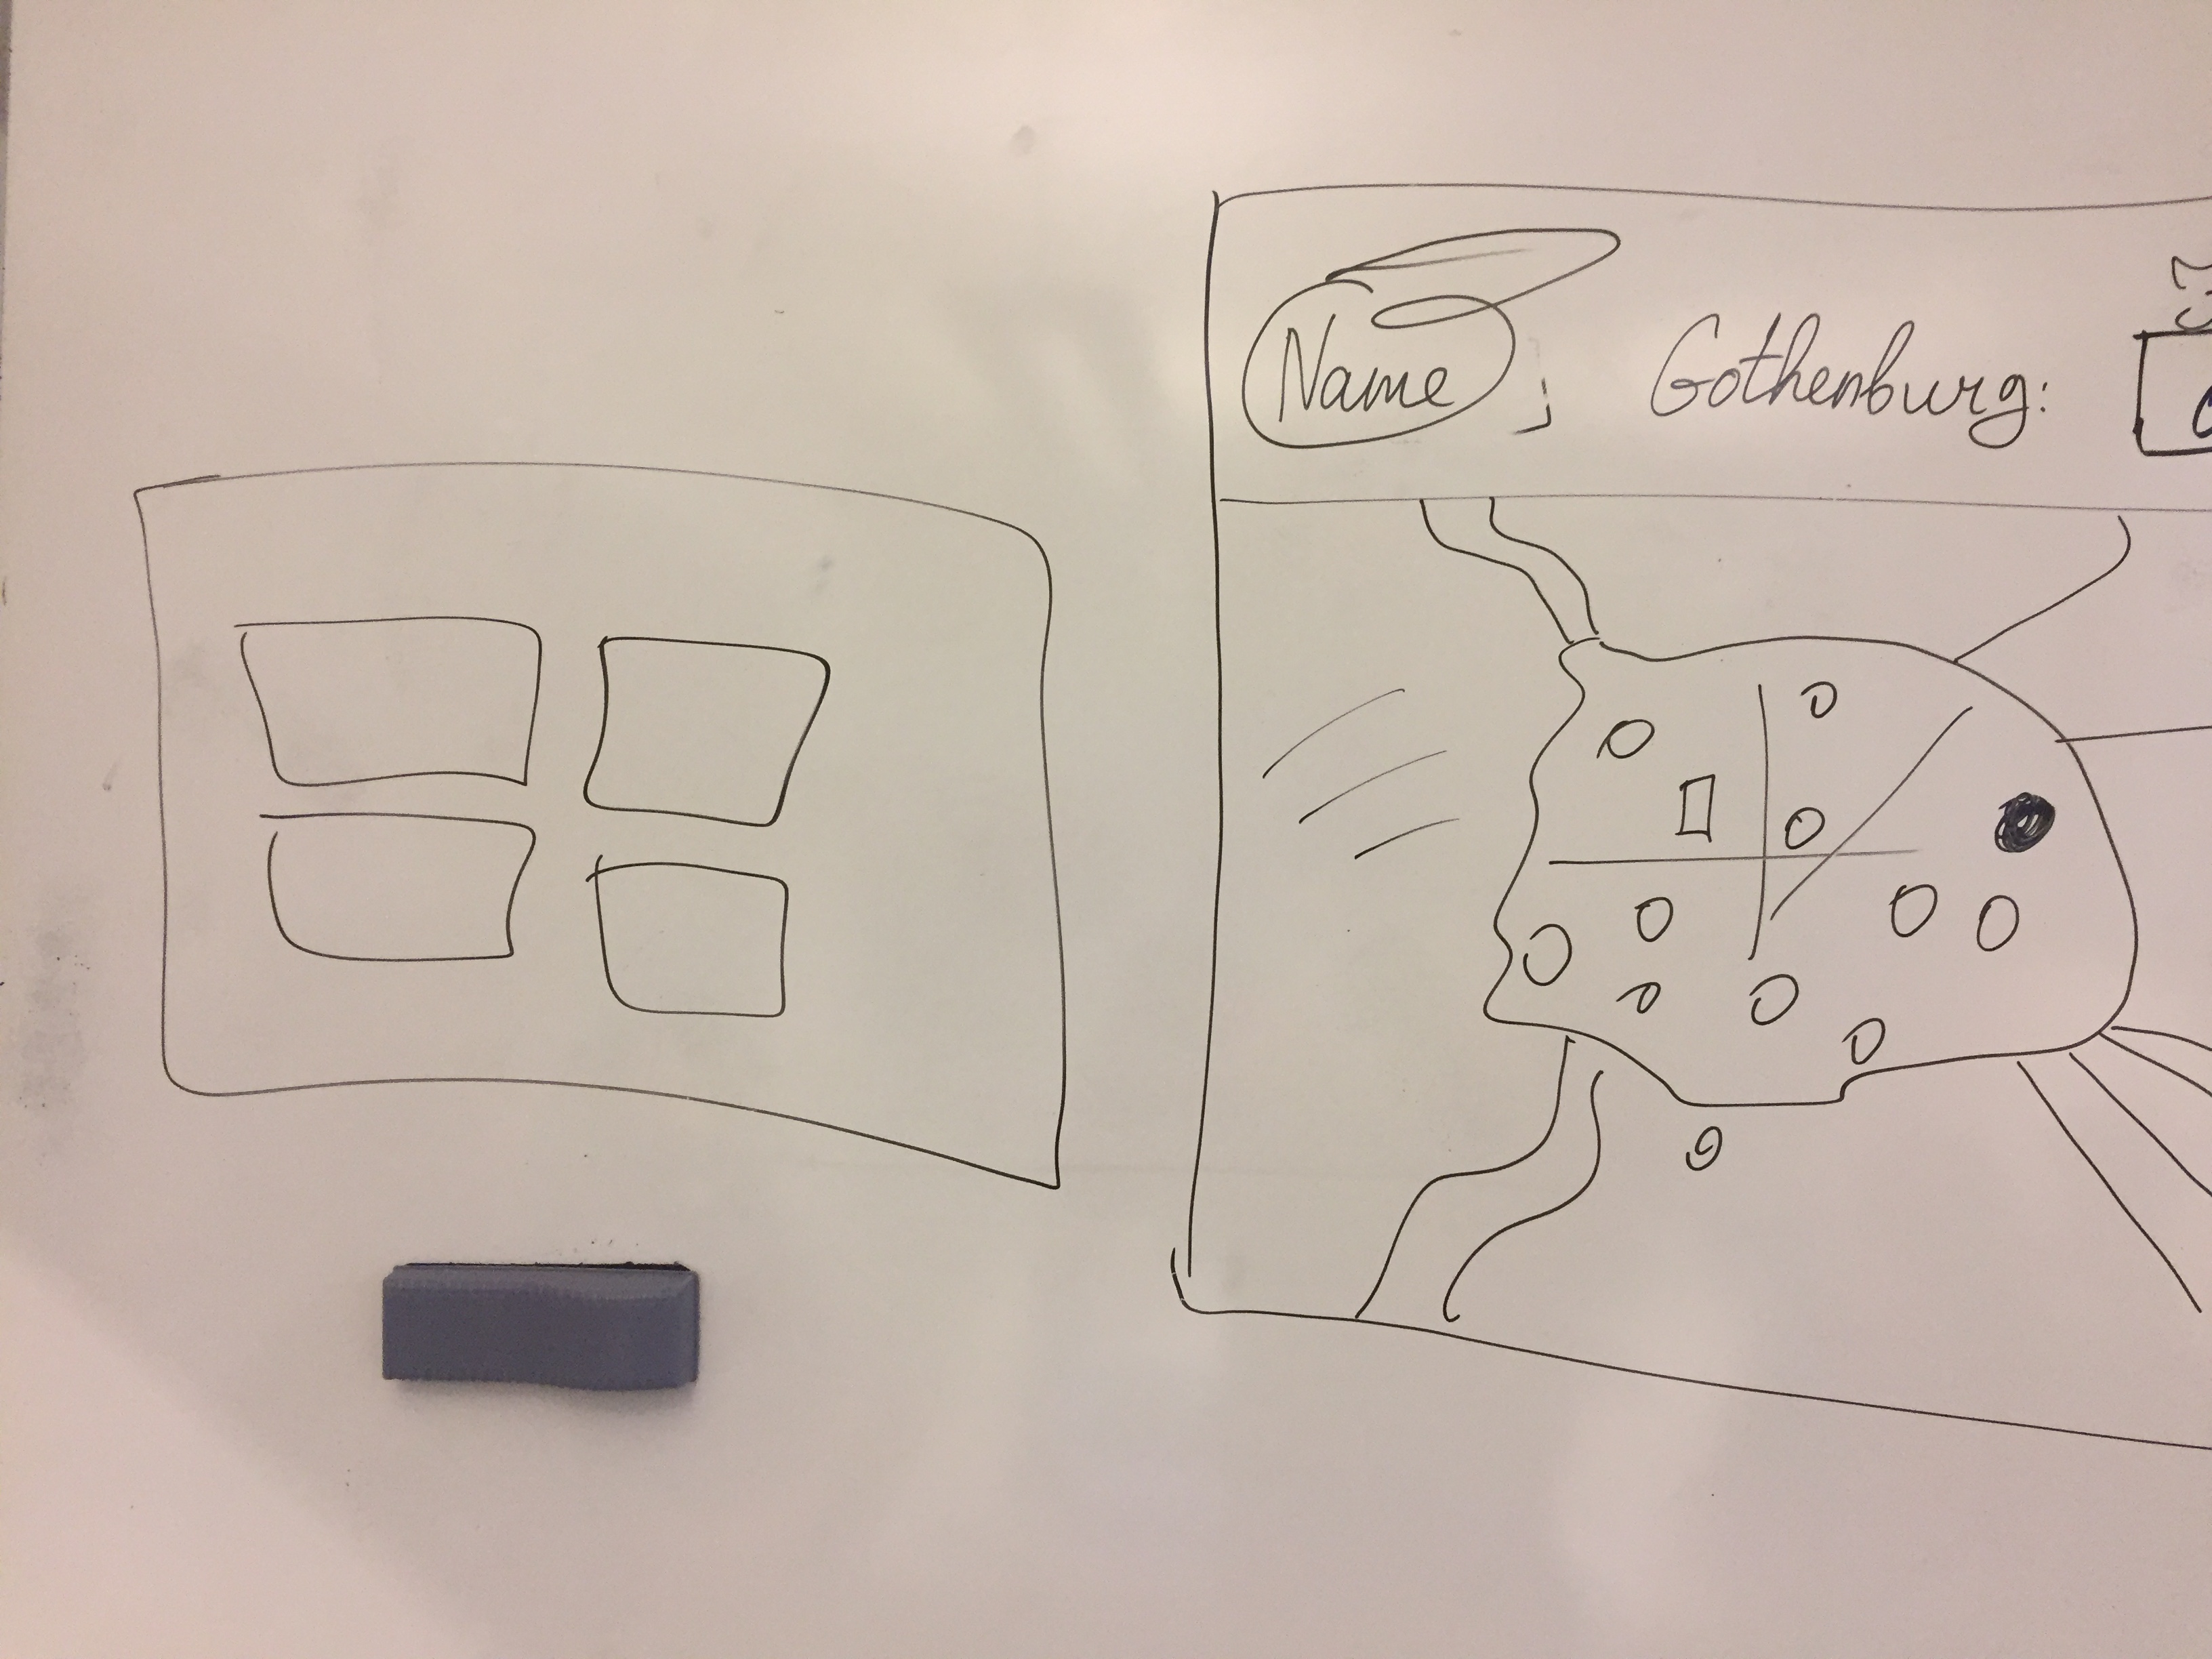 Name Gothenburg: